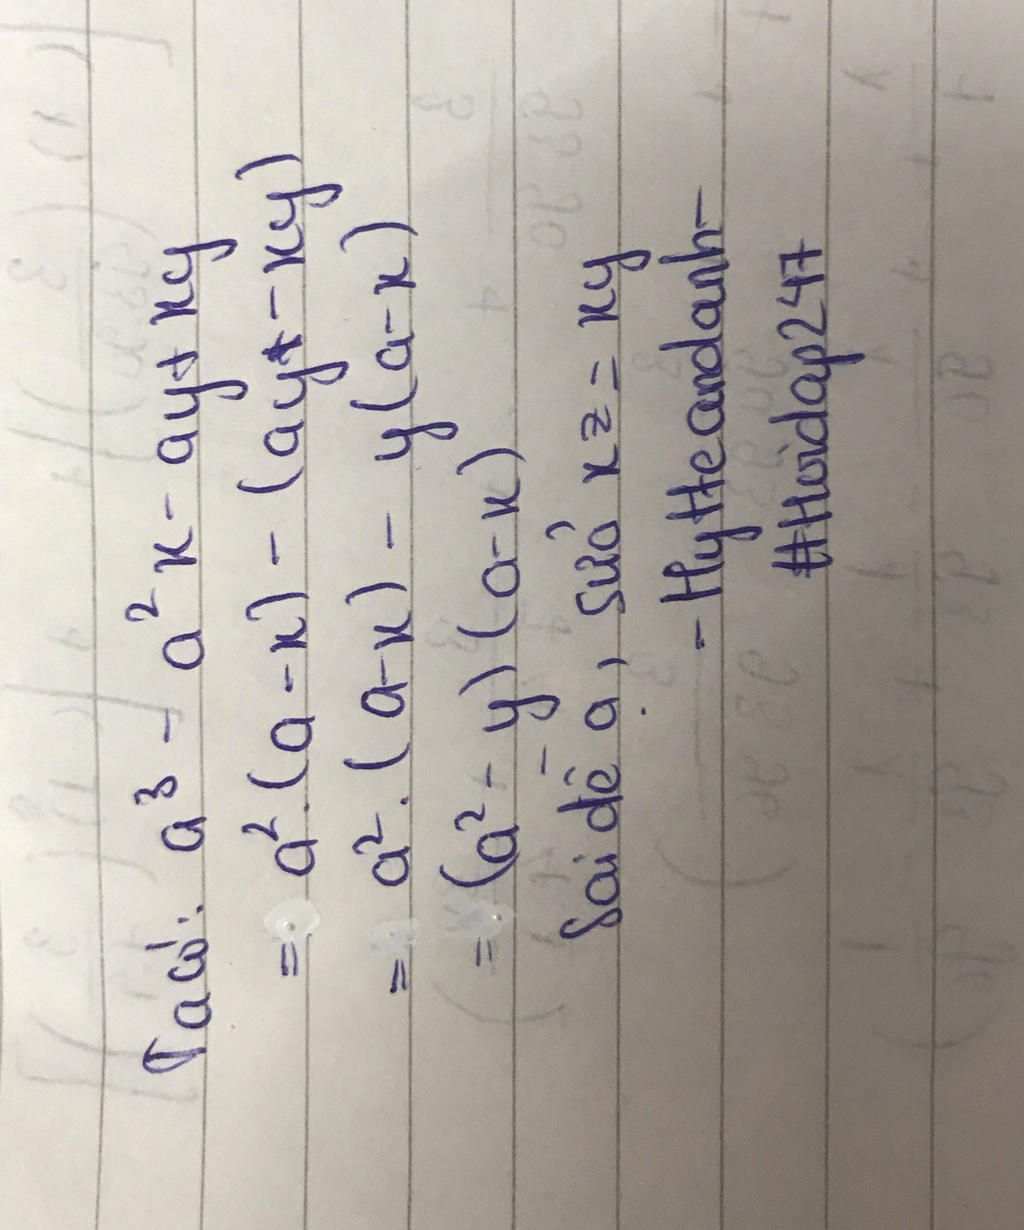 Ta có: a³ - a²x - ay + xy
= a².(a-x) - (ay - xy)
= a².(a-x) - y(a-x)
= (a² - y)(a-x)
Sai đề ạ, sửa xz = xy
- Hytteandanh -
#Hoidap247